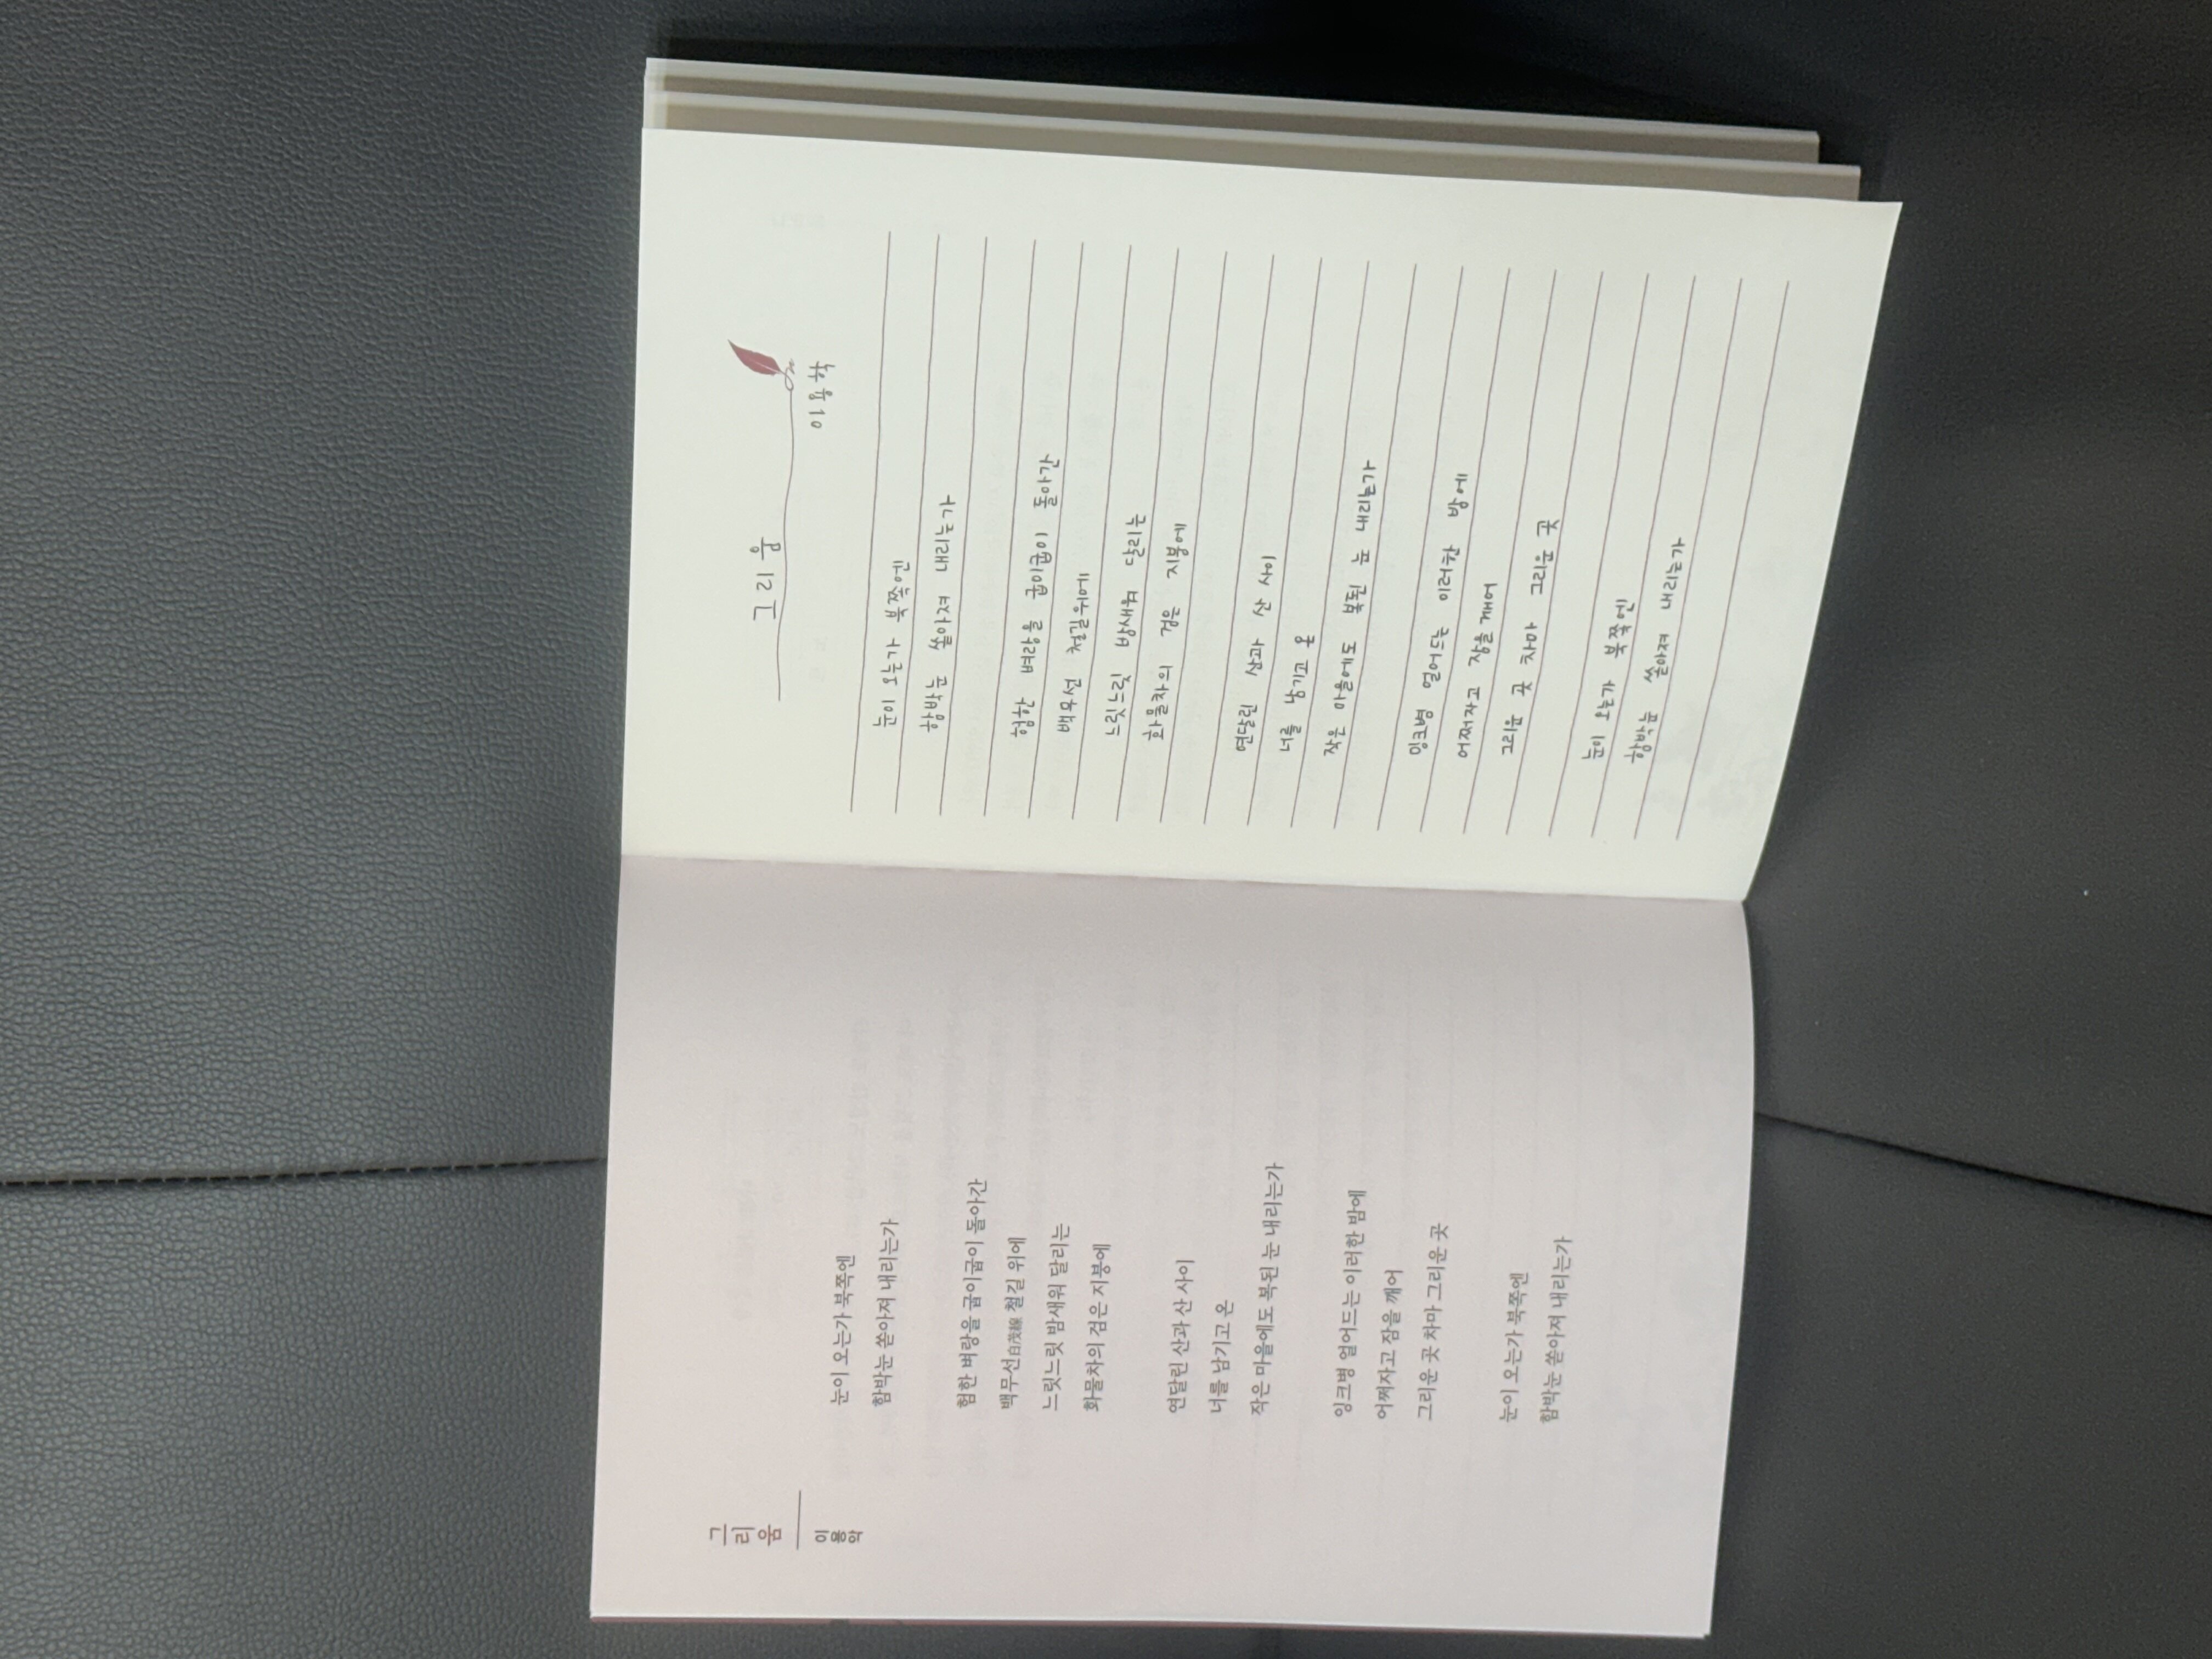 그리움
이용악
눈이 오는가 북쪽엔
함박눈 쏟아져 내리는가
험한 벼랑을 굽이굽이 돌아간
백무선白茂線 철길 위에
느릿느릿 밤새워 달리는
화물차의 검은 지붕에
연달린 산과 산 사이
너를 남기고 온
작은 마을에도 복된 눈 내리는가
잉크병 얼어드는 이러한 밤에
어쩌자고 잠을 깨어
그리운 곳 차마 그리운 곳
눈이 오는가 북쪽엔
함박눈 쏟아져 내리는가
그리움
이용악
눈이 오는가 북쪽엔
함박눈 쏟아져 내리는가
험한 벼랑을 굽이굽이 돌아간
백무선 철길위에
느릿느릿 밤새워 달리는
화물차의 검은 지붕에
연달린 산과 산 사이
너를 남기고 온
작은 마을에도 복된 눈 내리는가
잉크병 얼어드는 이러한 밤에
어쩌자고 잠을 깨어
그리운 곳 차마 그리운 곳
눈이 오는가 북쪽엔
함박눈 쏟아져 내리는가